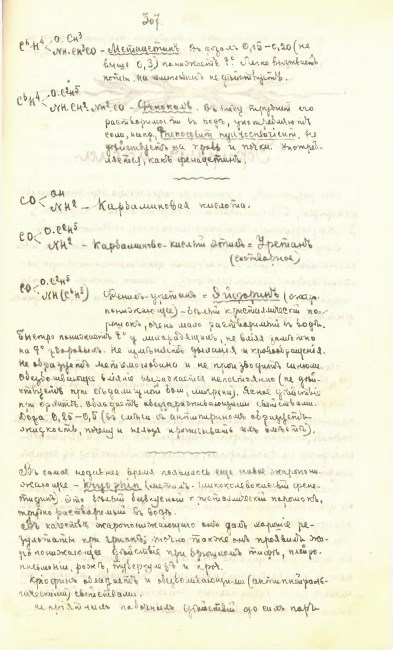 307.
C⁶H⁴ < O.CH³
NH.CH³CO – Метацетинъ. Въ дозахъ 0,15–0,20 (не
выше 0,3) понижаетъ t°. Легко вызываетъ
потъ. На кишечникъ не дѣйствуетъ.
C⁶H⁴ < O.C²H⁵
NH.CH².NH².CO – Феноколъ. Въ виду трудной его
растворимости въ водѣ, употребляютъ
соли, напр. Phenocollum hydrochloricum, не
дѣйствуетъ на кровь и почки. Употреб-
ляется, какъ фенацетинъ.
CO < OH
NH² – Карбаминовая кислота.
CO < O.C²H⁵
NH² – Карбаминово-кислый этилъ = Уретанъ
(снотворное)
CO < O.C²H⁵
NH(C⁶H⁵) Фенилъ-уретанъ = Эйфоринъ (жаро-
понижающее) – бѣлый кристаллическій по-
рошокъ, очень мало растворимый въ водѣ.
Быстро понижаетъ t° у лихорадящихъ, не вліяя замѣтно
на t° здоровыхъ. Не измѣняетъ дыханія и кровообращенія.
Не образуетъ метгемоглобина и не производитъ ціаноза.
Обезболивающее вліяніе выражается непостоянно (не дѣй-
ствуетъ при головной боли, мигрени). Ясное дѣйствіе
при Обладаетъ обеззараживающими свойствами.
Доза 0,25–0,5 (въ смѣси съ антипириномъ образуетъ
жидкость, почему и нельзя прописывать ихъ вмѣстѣ).
Въ самое недавнее время появилось еще новое жаропони-
жающее – Kryophin (метилъ-гликолевокислый фене-
тидинъ). Это бѣлый безцвѣтный кристаллическій порошокъ,
трудно растворимый въ водѣ.
Въ качествѣ жаропонижающаго онъ далъ хорошіе ре-
зультаты при гриппѣ; точно также онъ проявилъ жа-
ропонижающее дѣйствіе при брюшномъ тифѣ, плевро-
пневмоніи, рожѣ, туберкулезѣ и проч.
Кріофинъ обладаетъ и обезболивающими (антиневралъ-
гическими) свойствами.
Непріятныхъ побочныхъ дѣйствій до сихъ поръ